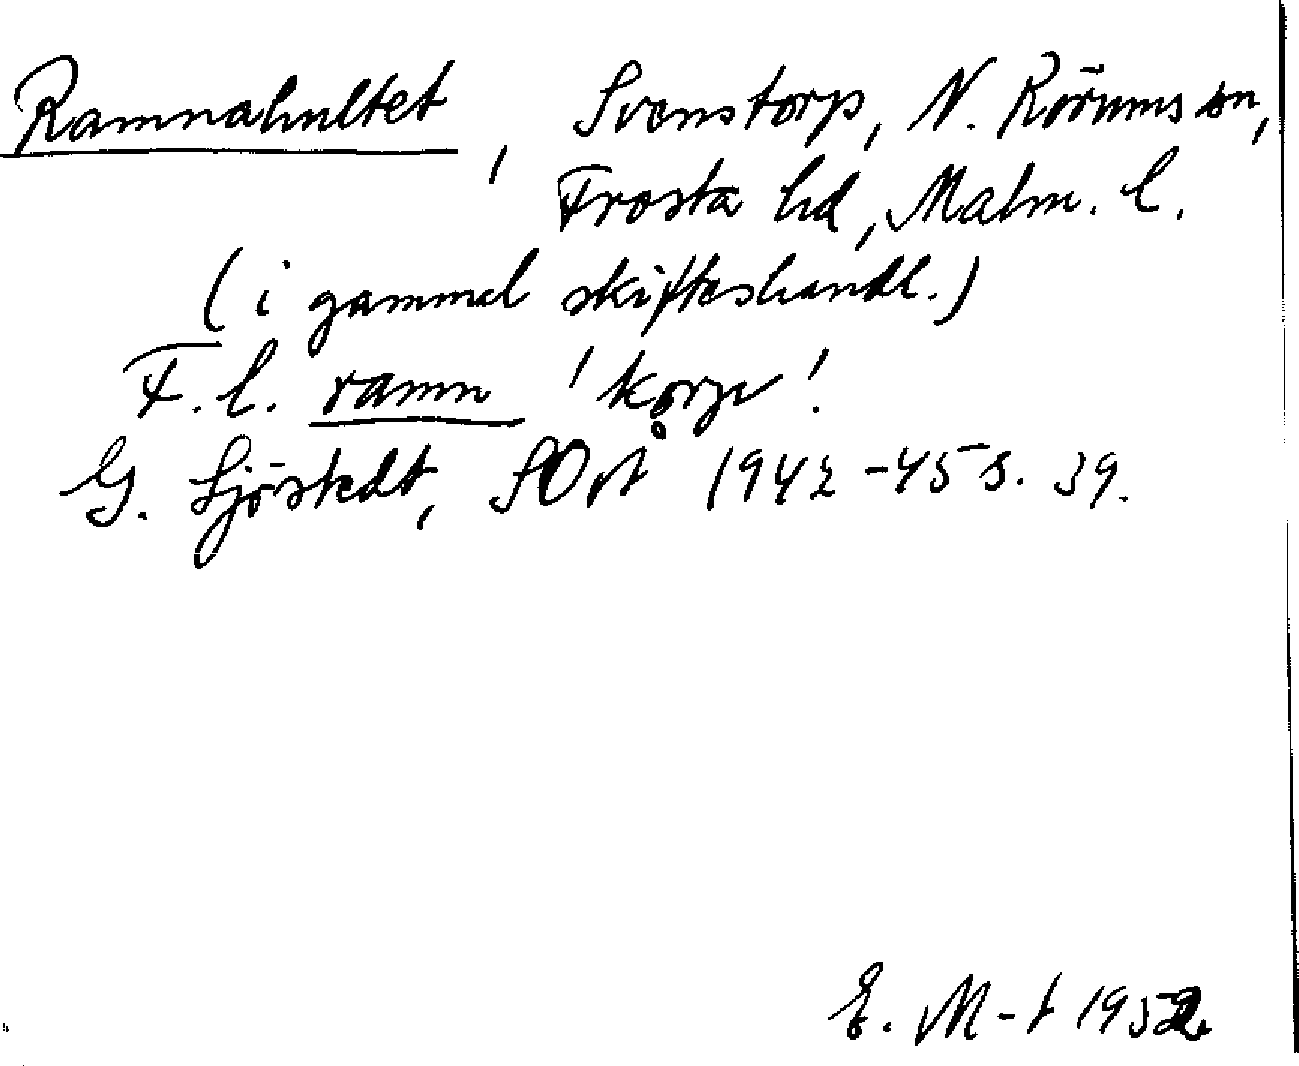 Ramnahultet, Svenstorp, N. Rörums sn,
Frosta hd, Malm. l.
(i gammal skifteshandl.)
F. l. ramn 'korp'.
G. Sjöstedt, SOÅ 1942-45 s. 39.
E. M-t 1952